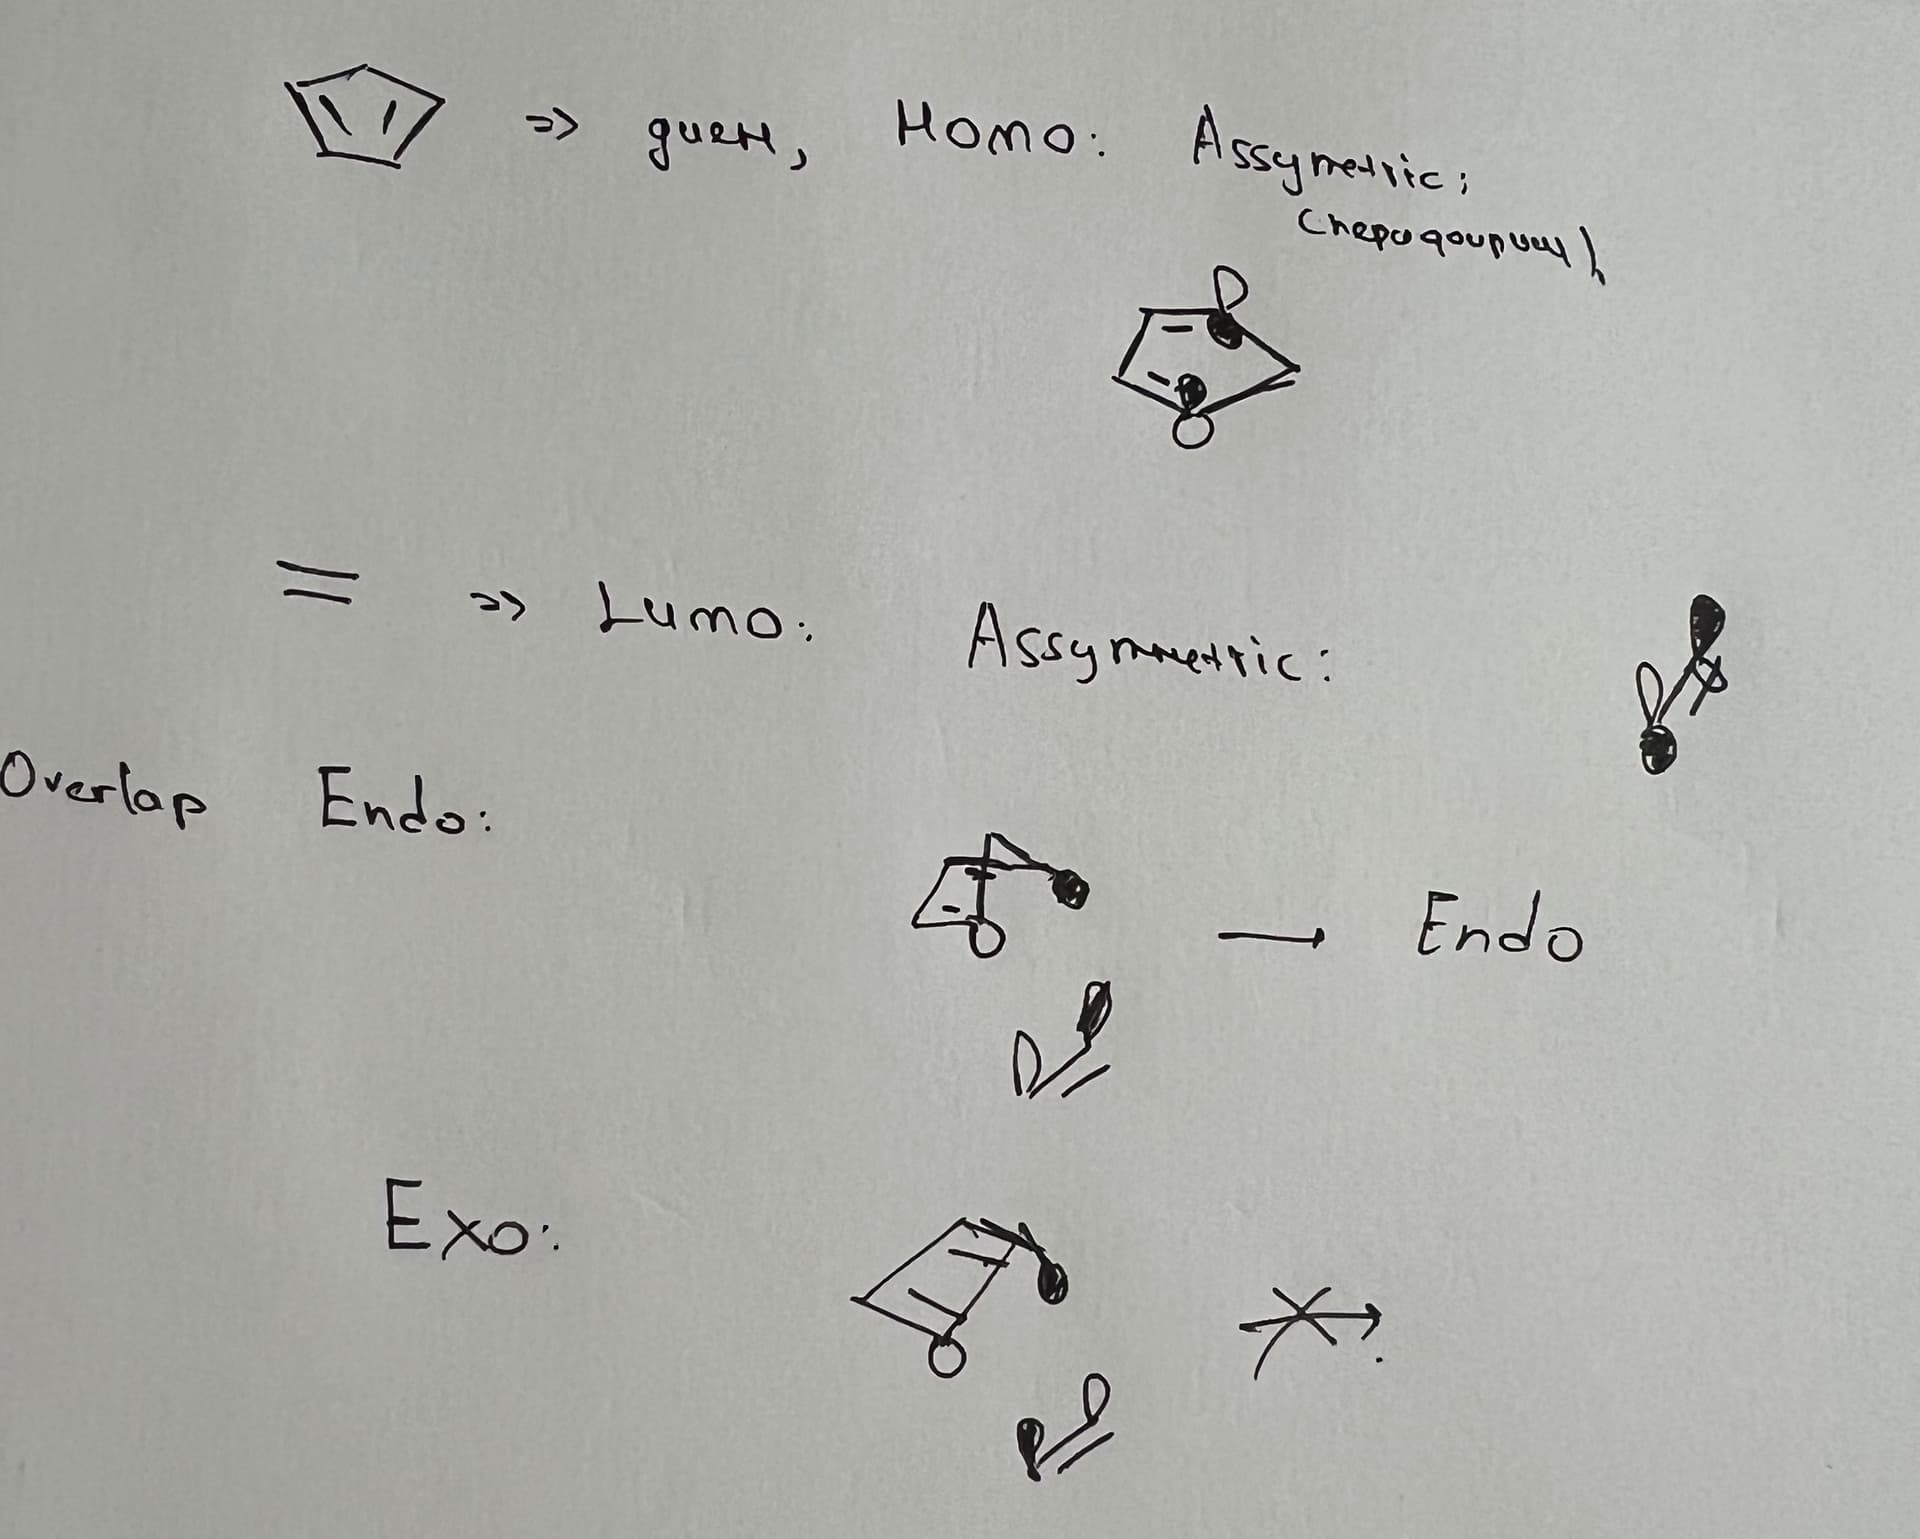 => диен, Homo: Assymetric;
=> Lumo: Assymmetric:
Overlap Endo:
→ Endo
Exo: